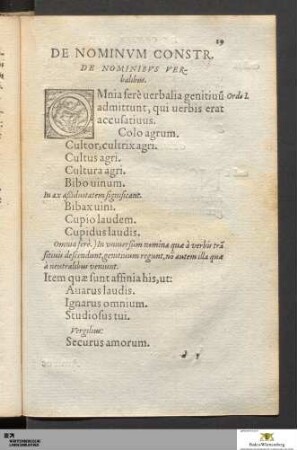 19
DE NOMINVM CONSTR.
DE NOMINIBVS VER-
balibus.
OMnia ferè uerbalia genitiuũ Ordo I.
admittunt, qui uerbis erat
accusatiuus.
Colo agrum.
Cultor, cultrix agri.
Cultus agri.
Cultura agri.
Bibo uinum.
In ax assiduitatem significant.
Bibax uini.
Cupio laudem.
Cupidus laudis.
Omnia ferè.) In vniuersum nomina quæ à verbis trã
sitiuis descendunt, genitiuum regunt, nõ autem illa quæ
à neutralibus veniunt.
Item quæ sunt affinia his, ut:
Auarus laudis.
Ignarus omnium.
Studiosus tui.
Vergilius:
Securus amorum.
Baden-Württemberg